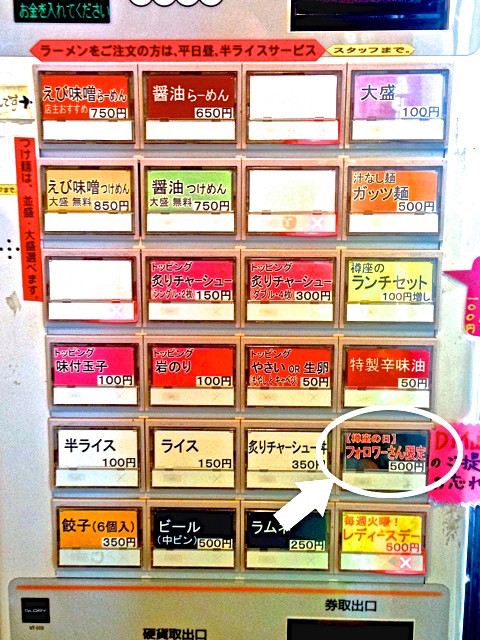 お金を入れてください
ラーメンをご注文の方は、平日昼、半ライスサービス
スタッフまで。
えび味噌らーめん
店主おすすめ 750円
醤油らーめん
650円
大盛
100円
つけ麺は、並盛・大盛選べます。
えび味噌つけめん
大盛 無料 850円
醤油つけめん
大盛 無料 750円
汁なし麺
ガッツ麺
500円
トッピング
炙りチャーシュー
シングル・2枚 150円
トッピング
炙りチャーシュー
ダブル・4枚 300円
樽座の
ランチセット
100円増し
トッピング
味付玉子
100円
トッピング
岩のり
100円
トッピング
やさい OR 生卵
(もやしとキャベツ) 50円
特製辛味油
50円
半ライス
100円
ライス
150円
炙りチャーシュー丼
350円
【樽座の日】
フォロワーさん限定
500円
餃子(6個入)
350円
ビール
(中ビン) 500円
ラムネ
250円
毎週火曜!
レディースデー
500円
GLORY
硬貨取出口
券取出口